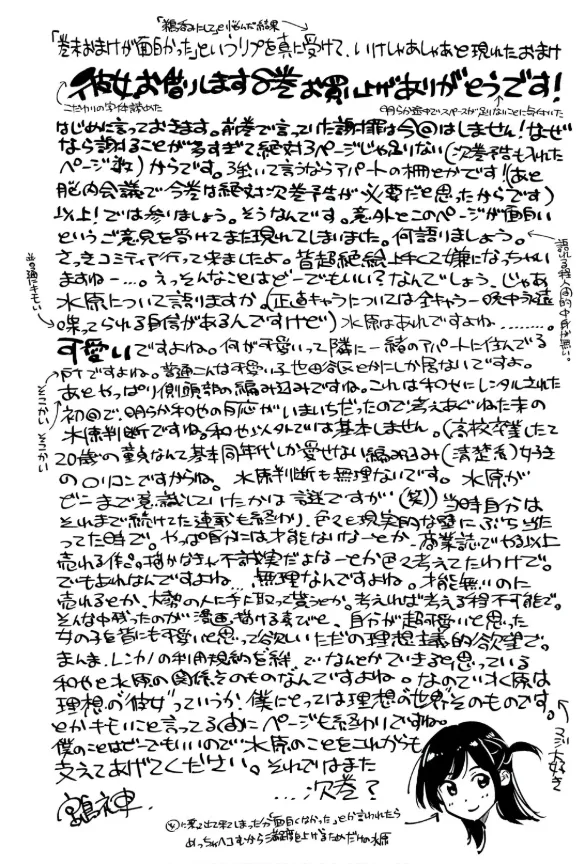 「鵜呑みにして」と悩んだ結果
「巻末おまけが面白かった」というリプを真に受けて、いけしゃあしゃあと現れたおまけ
彼女、お借りします8巻お買い上げありがとうです!
こだわりの字体諦めた
明らか途中でスペースが足りないことに気付いた
はじめに言っておきます。前巻で言っていた謝罪は今回はしません!なぜ
なら謝ることがありすぎて絶対3ページじゃ足りない(次巻予告も入れた
ページ数)からです。強いて言うならアパートの柵とかです!(あと
脳内会議で今巻は絶対次巻予告が必要だと思ったからです)
以上!では参りましょう。そうなんです。意外とこのページが面白い
というご意見を受けてまた現れてしまいました。何語りましょう。
さっきコミティア行って来ましたよ。皆超絶絵上手くて嫌になっちゃい
ますねー…。えっそんなことはどーでもいい?なんでしょう、じゃあ
水原について語りますか。(正直キャラについては全キャラ一晩中永遠
喋ってられる自信があるんですけど)水原はあれですよね………。
可愛いですよね。何が可愛いって隣に一緒のアパートに住んでる
JDですよね。普通こんな可愛い子世田谷区とかにしか居ないですよ。
あとやっぱり側頭部の編み込みですね。これは和也にレンタルされた
初回で、明らか和也の反応がいまいちだったので考えあぐねた末の
水原判断ですね。和也レンタルでは基本しません。(高校卒業したて
20歳の童貞なんて基本同年代しか愛せない編み込み(清楚系)好き
の〇リコンですからね。水原判断も無理ないです。水原が
どこまで意識していたかは謎ですが(笑))当時自分は
それまで続けてた連載も終わり、色々と現実的な壁にぶち当た
ってた時で。やっぱ自分には才能はないなーとか、商業誌でやる以上
売れる作品描かなきゃ不誠実だよなーとか色々考えてたわけで。
でもあれなんですよね…、無理なんですよね。才能無いのに
売れるとか、大勢の人に手に取って貰うとか。考えれば考える程不可能で。
そんな中残ったのが漫画描ける喜びと、自分が超可愛いと思った
女の子を皆にも可愛いと思って欲しいただの理想主義的欲望で。
まんま、レンカノの利用規約を絆でなんとかできると思っている
和也と水原の関係そのものなんですよね。なので水原は
理想の"彼女"っていうか、僕にとっては理想の"世界"そのものです。
とかキモいこと言ってる間にページも終わりですね。
僕のことはどーでもいいので水原のことをこれからも
支えてあげてください。それではまた
…次巻?
宮島礼吏
語れる程人間的中身が無い。
普通にキモい
そこかい
そこかい
マジ大好き
めっちゃヘコむから